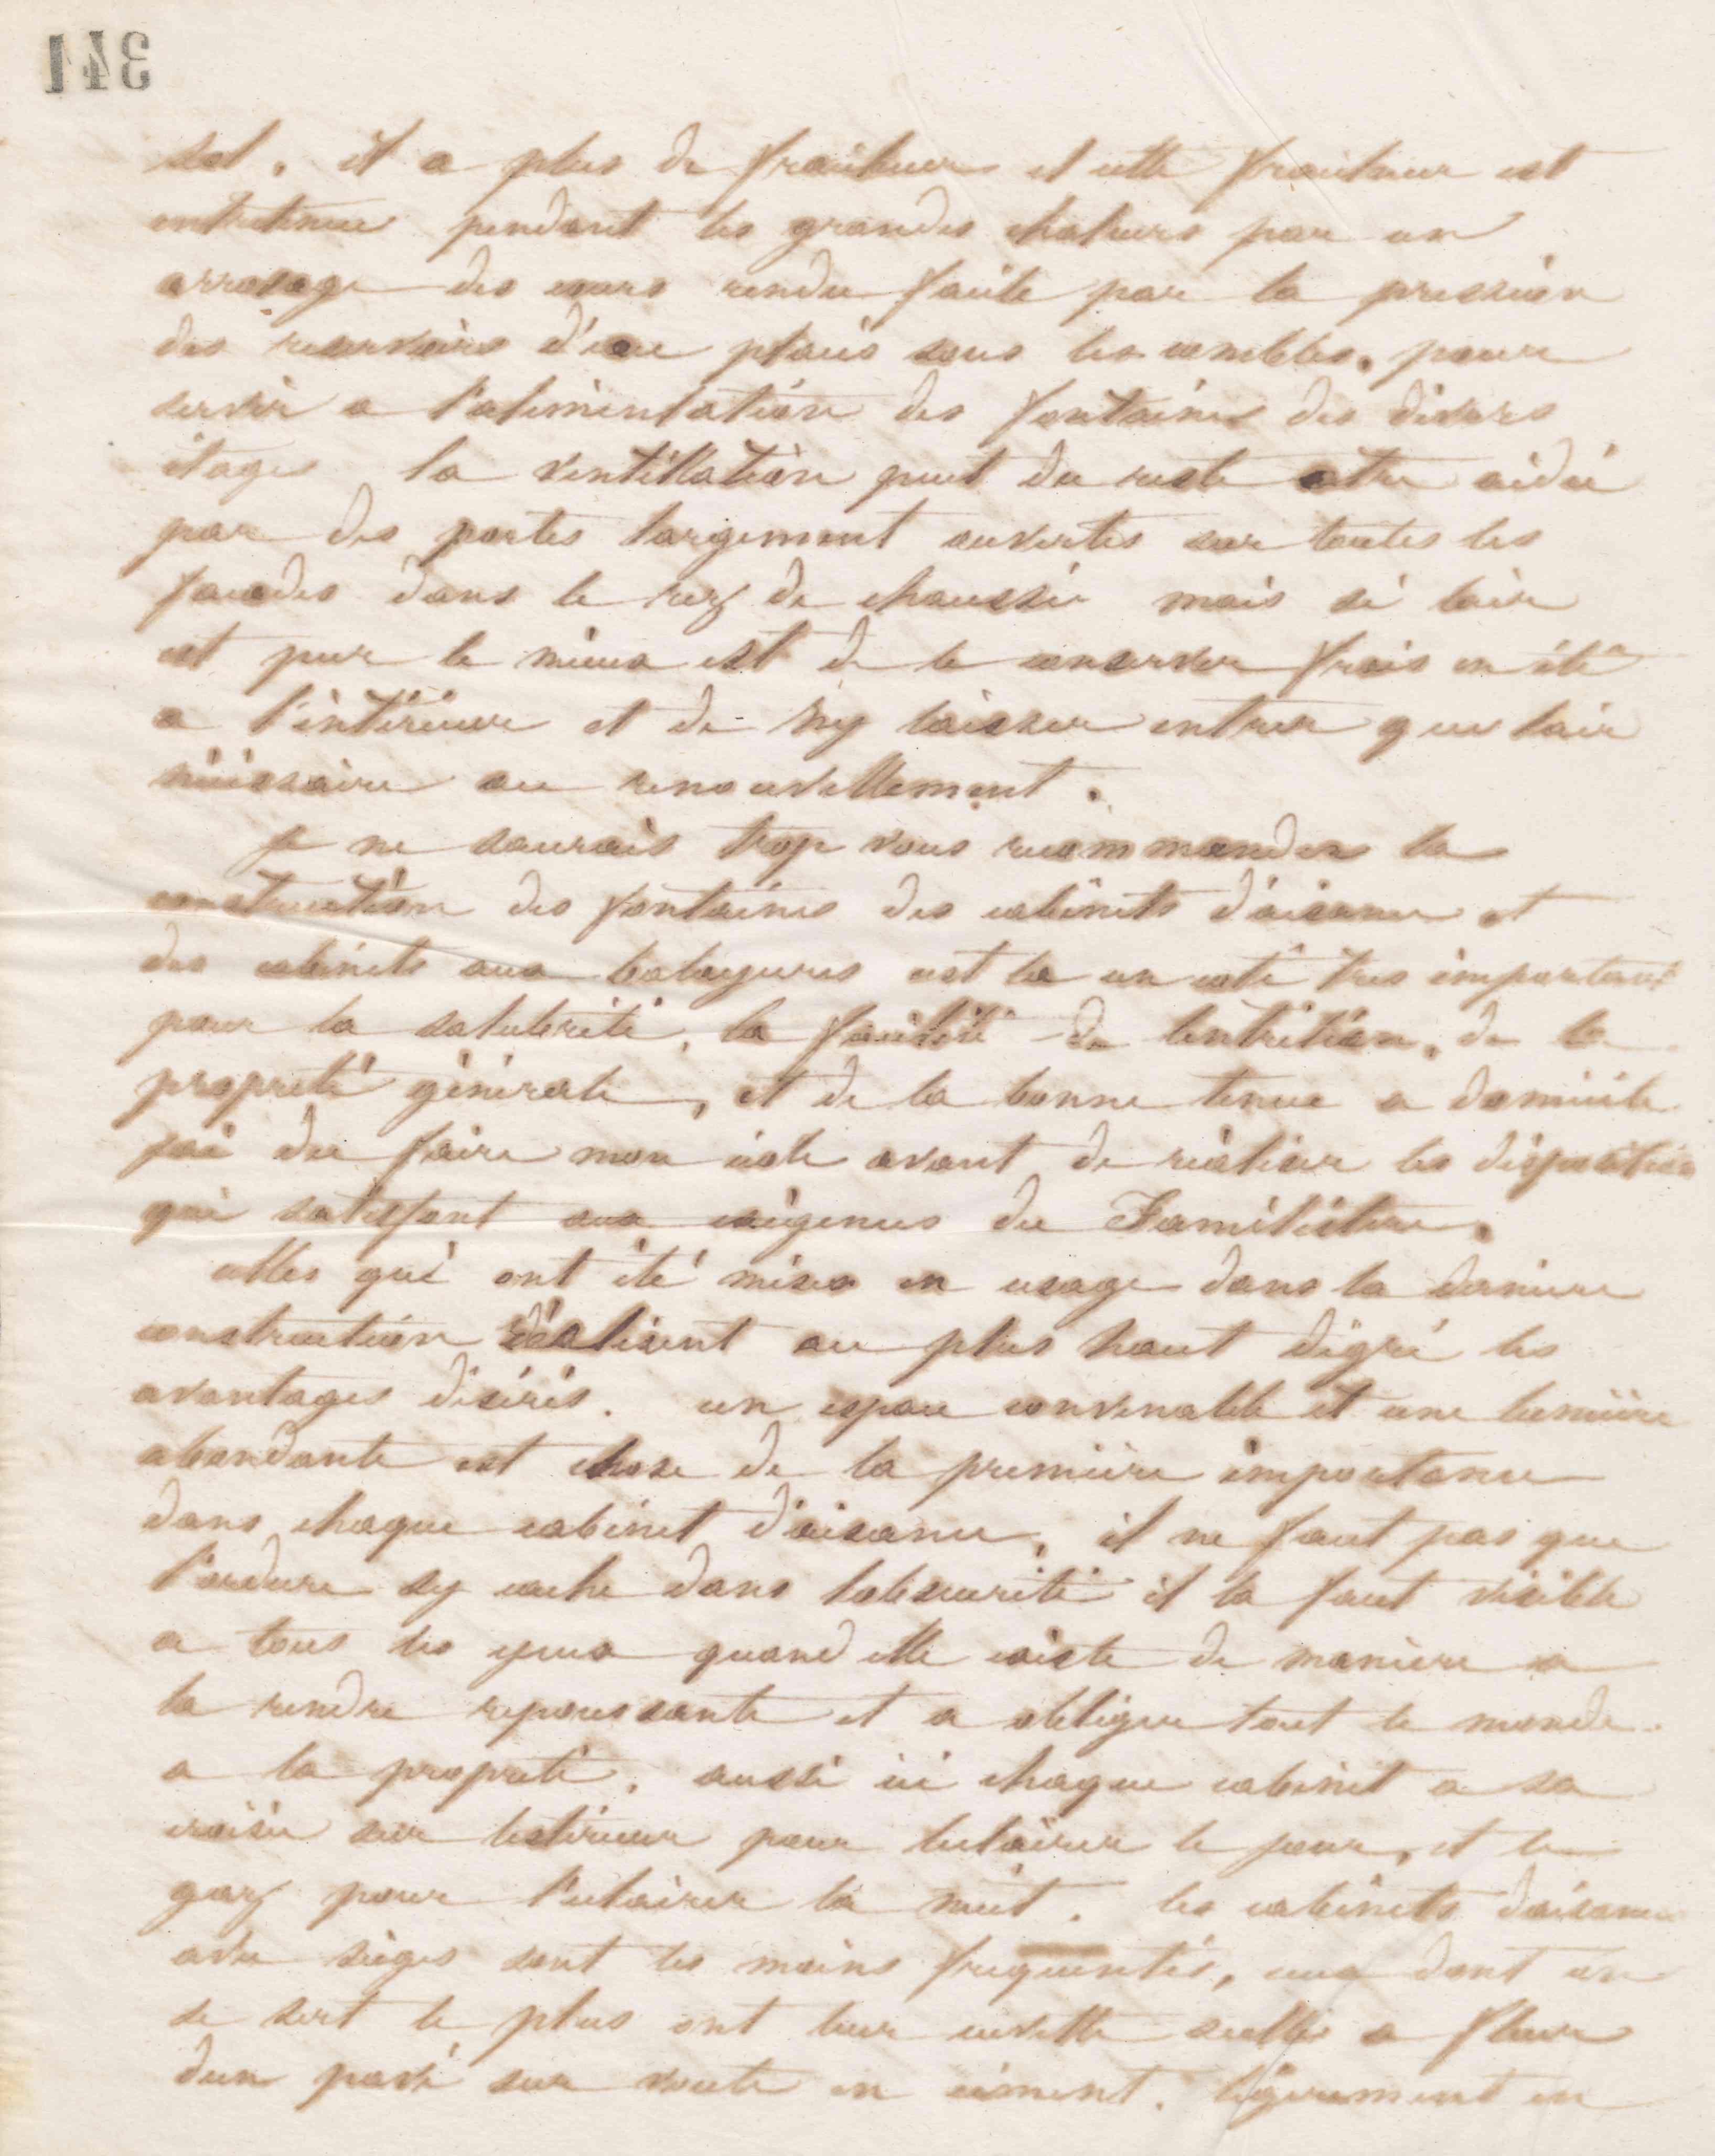 341
sol, il a plus de fraicheur et cette fraicheur est
entretenue pendant les grandes chaleurs par un
arrosage des cours rendu facile par la pression
des reservoirs d'eau placés sous les combles, pour
servir a l'alimentation des fontaines des divers
étages la ventillation peut du reste etre aidée
par des portes largement ouvertes sur toutes les
facades dans le rez de chaussée mais si lair
est pur le mieux est de le conserver frais en été
a l'intérieur et de n'y laisser entrer que lair
nécissaire au renouvellement.
je ne saurais trop vous recommander la
construction des fontaines des cabinets d'aisance et
des cabinets aux balayures cest la un coté tres important
pour la saluberité, la facilité de lentretien, de la
propreté générale, et de la bonne tenue a domicile
jai du faire mon école avant de réaliser les disposition
qui satisfont aux exigences du Familistère.
celles qui ont été mises en usage dans la derniere
construction réalisent au plus haut dégré les
avantages désirés. un espace convenable et une lumière
abondante est chose de la première importance
dans chaque cabinet d'aisance, il ne faut pas que
l'ordure sy cache dans lobscurité il la faut visible
a tous les yeux quand elle existe de maniere a
la rendre repoussante et a obliger tout le monde
a la propreté. aussi ici chaque cabinet a sa
croisée sur lextérieur pour leclairer le jour, et le
gaz pour l'eclairer la nuit. les cabinets daisance
avec sièges sont les moins frequentés, ceux dont on
se sert le plus ont leur cuvette scellée a fleur
dun pavé sur voute en ciment. légerement en